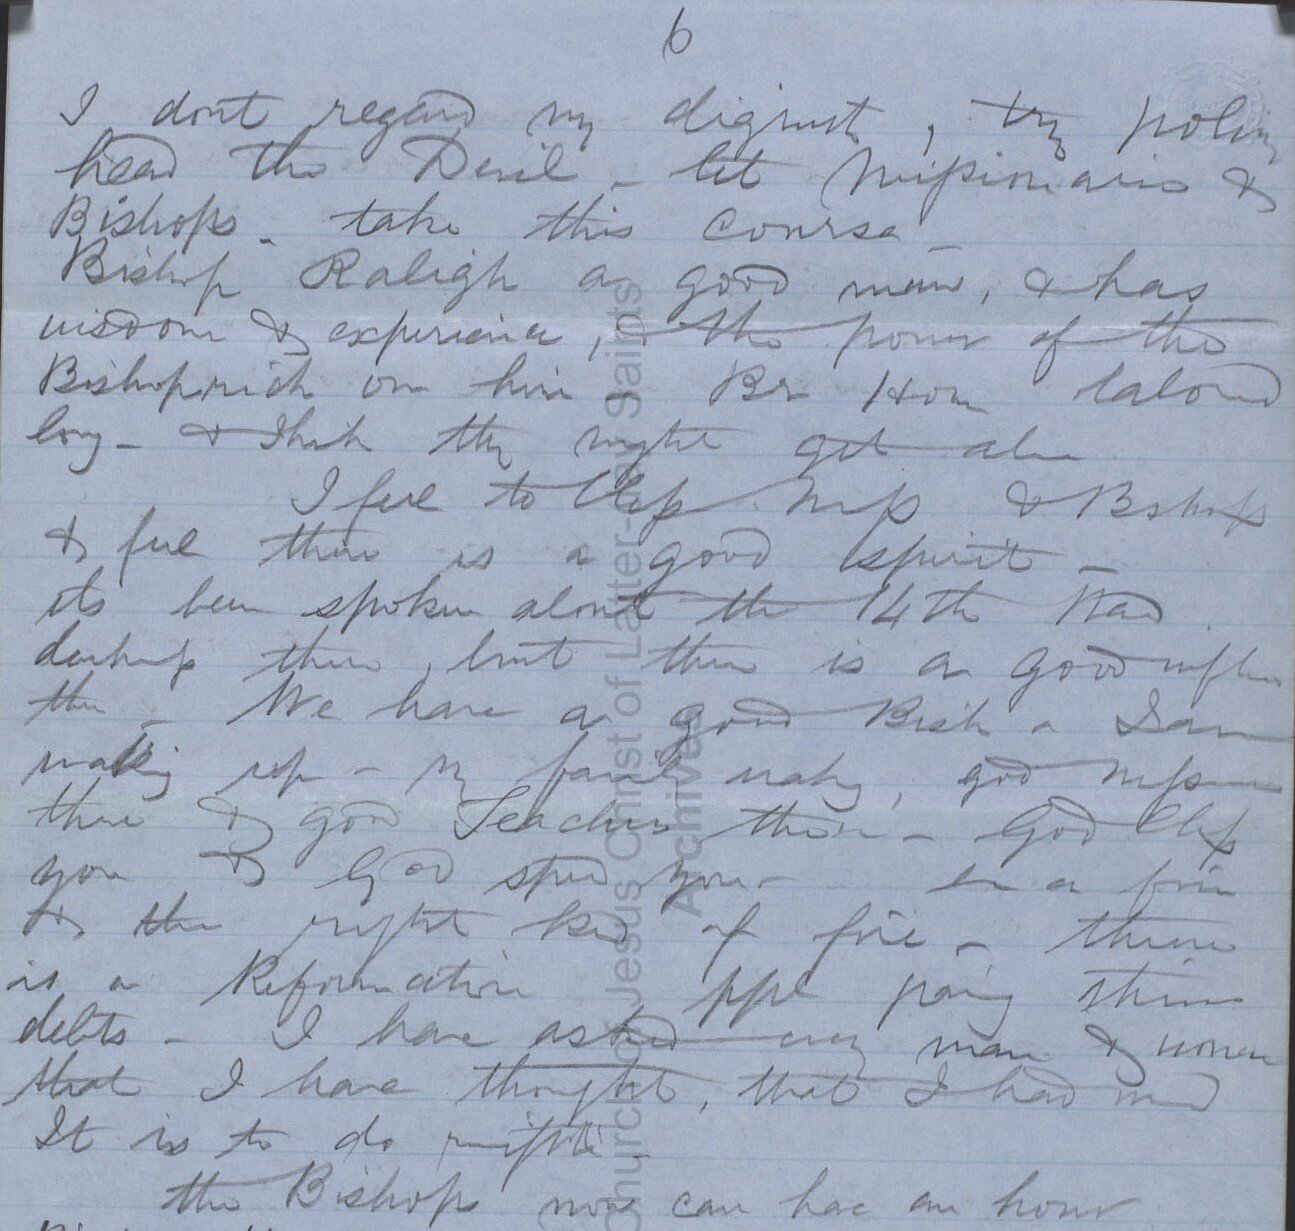 6
I dont regard my dignity, try policy
head the Devil - let Missionaries &
Bishops - take this course -
Bishop Raligh a good man, & has
wisdom & experience, & the power of the
Bishoprick on him - Br How labord
long - & think they might get
I feel to bless Miss & Bshops
& feel there is a good spirit -
its been spoken about the 14th Ward
there, but there is a good influ
there - We have a good Bish & I am
waking up - my family waking, good Miss
there & good Teachers there - God bless
you & God speed you - on a fire
& the right kind of fire - there
is a Reformation ppl paing their
debts - I have asked every man & women
that I have thought, that I had
It is to do right -
the Bishops now can hac an hour
Church of Jesus Christ of Latter-day Saints
Archives